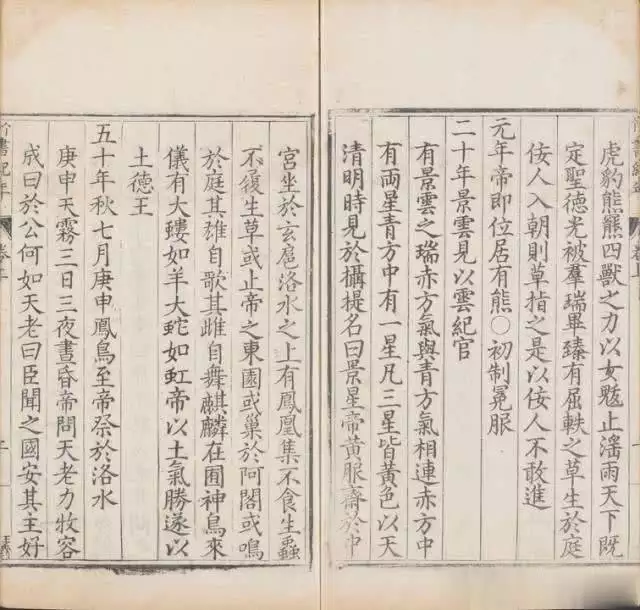 虎豹熊羆四獸之力以女魃止滛雨天下既
定聖徳光被羣瑞畢臻有屈軼之草生於庭
佞人入朝則草指之是以佞人不敢進
元年帝即位居有熊○初制冕服
二十年景雲見以雲紀官
有景雲之瑞赤方氣與青方氣相連赤方中
有兩星青方中有一星凡三星皆黄色以天
清明時見於攝提名曰景星帝黄服齋於中
宫坐於玄扈洛水之上有鳳凰集不食生蟲
不履生草或止帝之東園或巢於阿閣或鳴
於庭其雄自歌其雌自舞麒麟在囿神鳥來
儀有大螻如羊大螾如虹帝以土氣勝遂以
土徳王
五十年秋七月庚申鳳鳥至帝祭於洛水
庚申天霧三日三夜晝昏帝問天老力牧容
成曰於公何如天老曰臣聞之國安其主好
竹書紀年
卷上